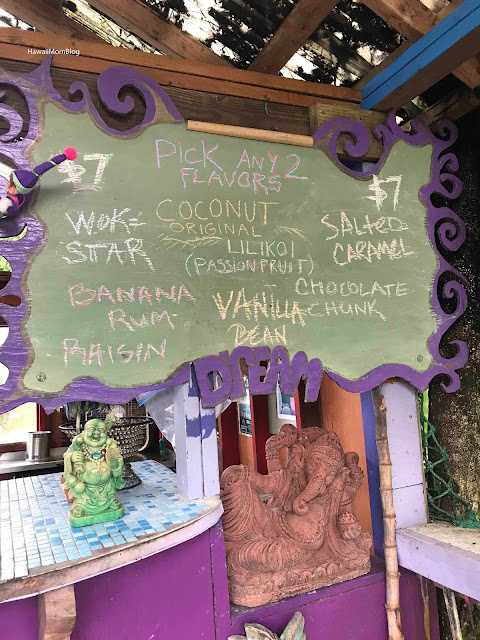 HawaiiMomBlog
PICK ANY 2
FLAVORS
$7
$7
WOK-
STAR
COCONUT
ORIGINAL
LILIKOI
(PASSION FRUIT)
SALTED
CARAMEL
BANANA
RUM
RAISIN
VANILLA
BEAN
CHOCOLATE
CHUNK
DREAM